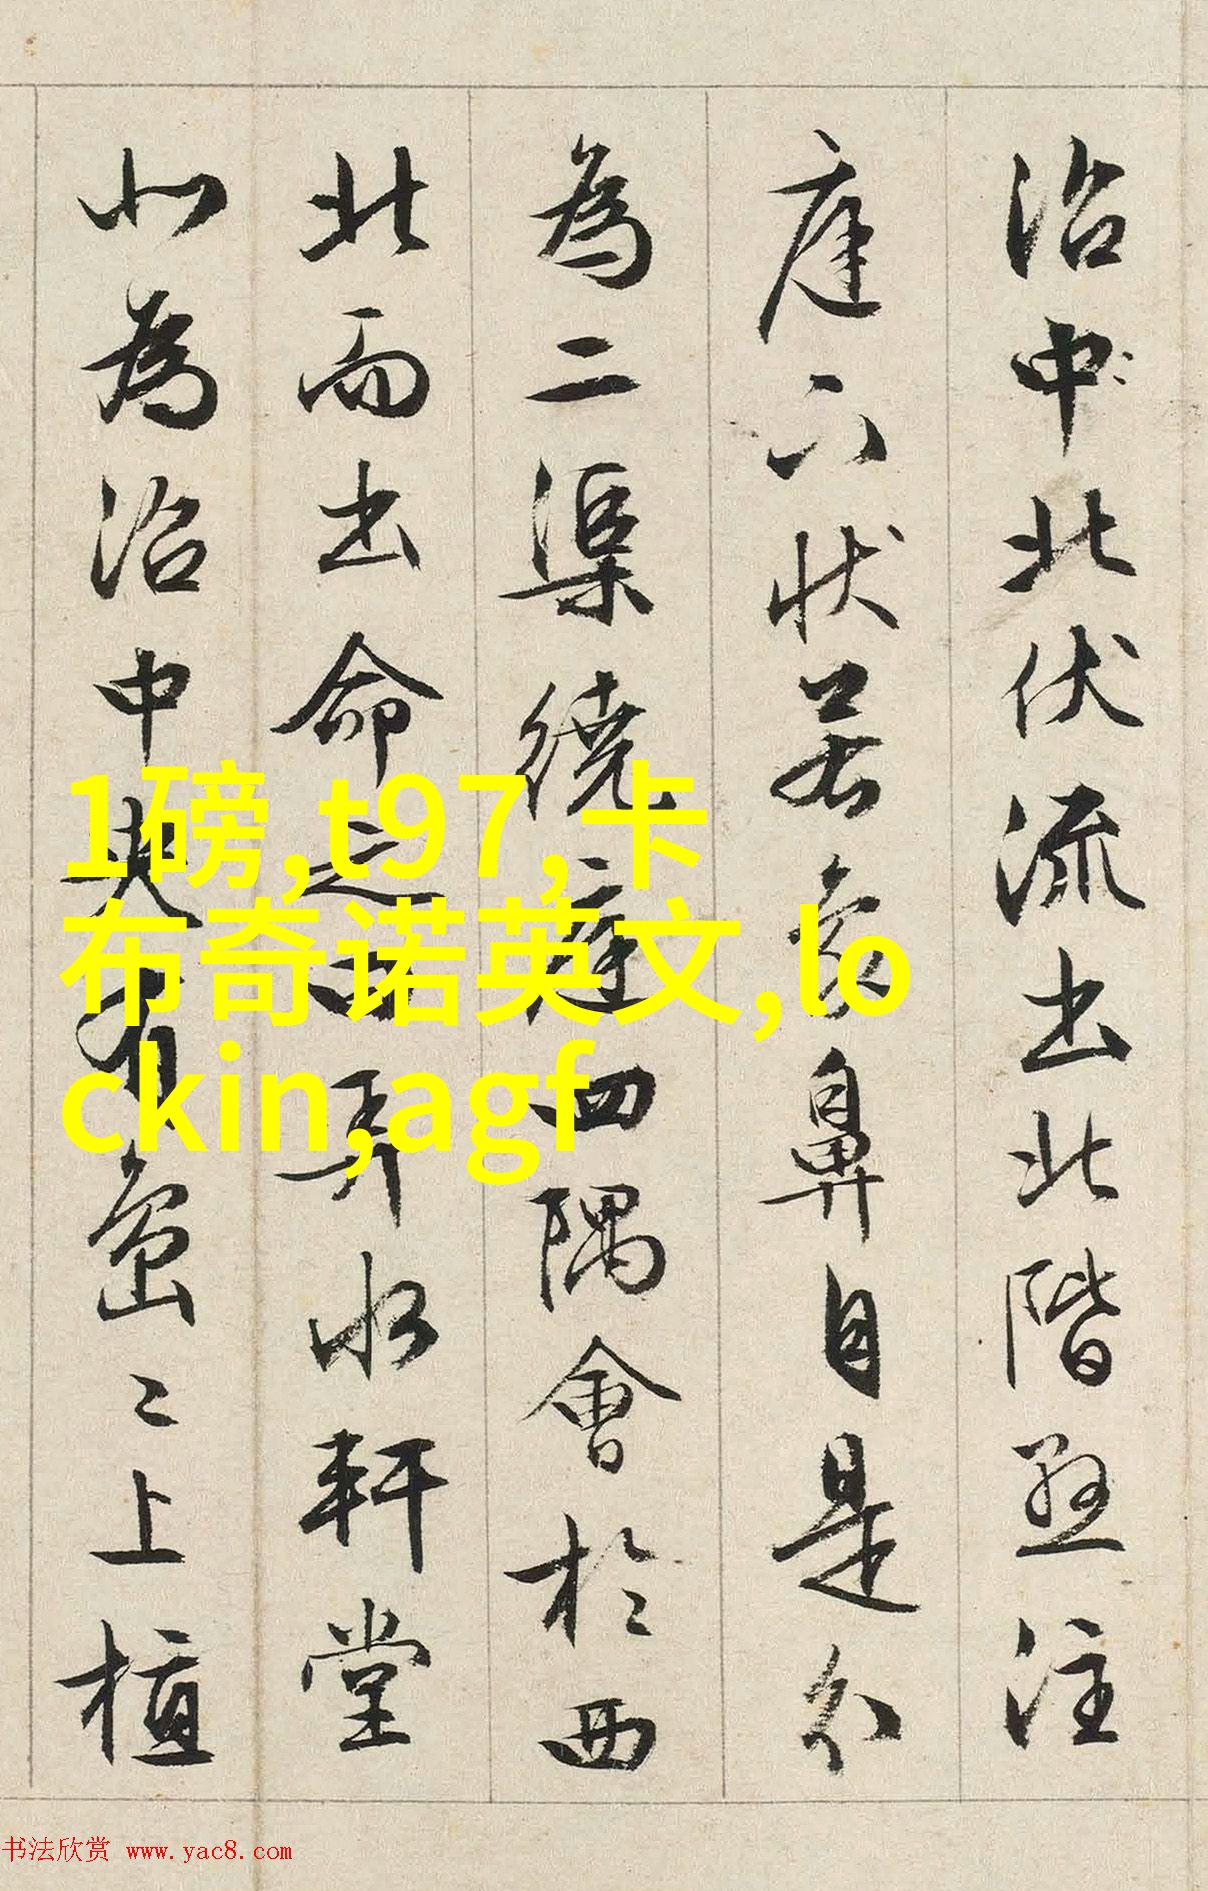 沼中北伏流出北階懸注
庭下状若象鼻自是分
為二渠繞庭四隅會於西
北而出命之曰弄水軒堂
北為沼中央有島〻上植
1磅,t97,卡
布奇诺英文,lo
ckin,agf
书法欣赏 www.yac8.com